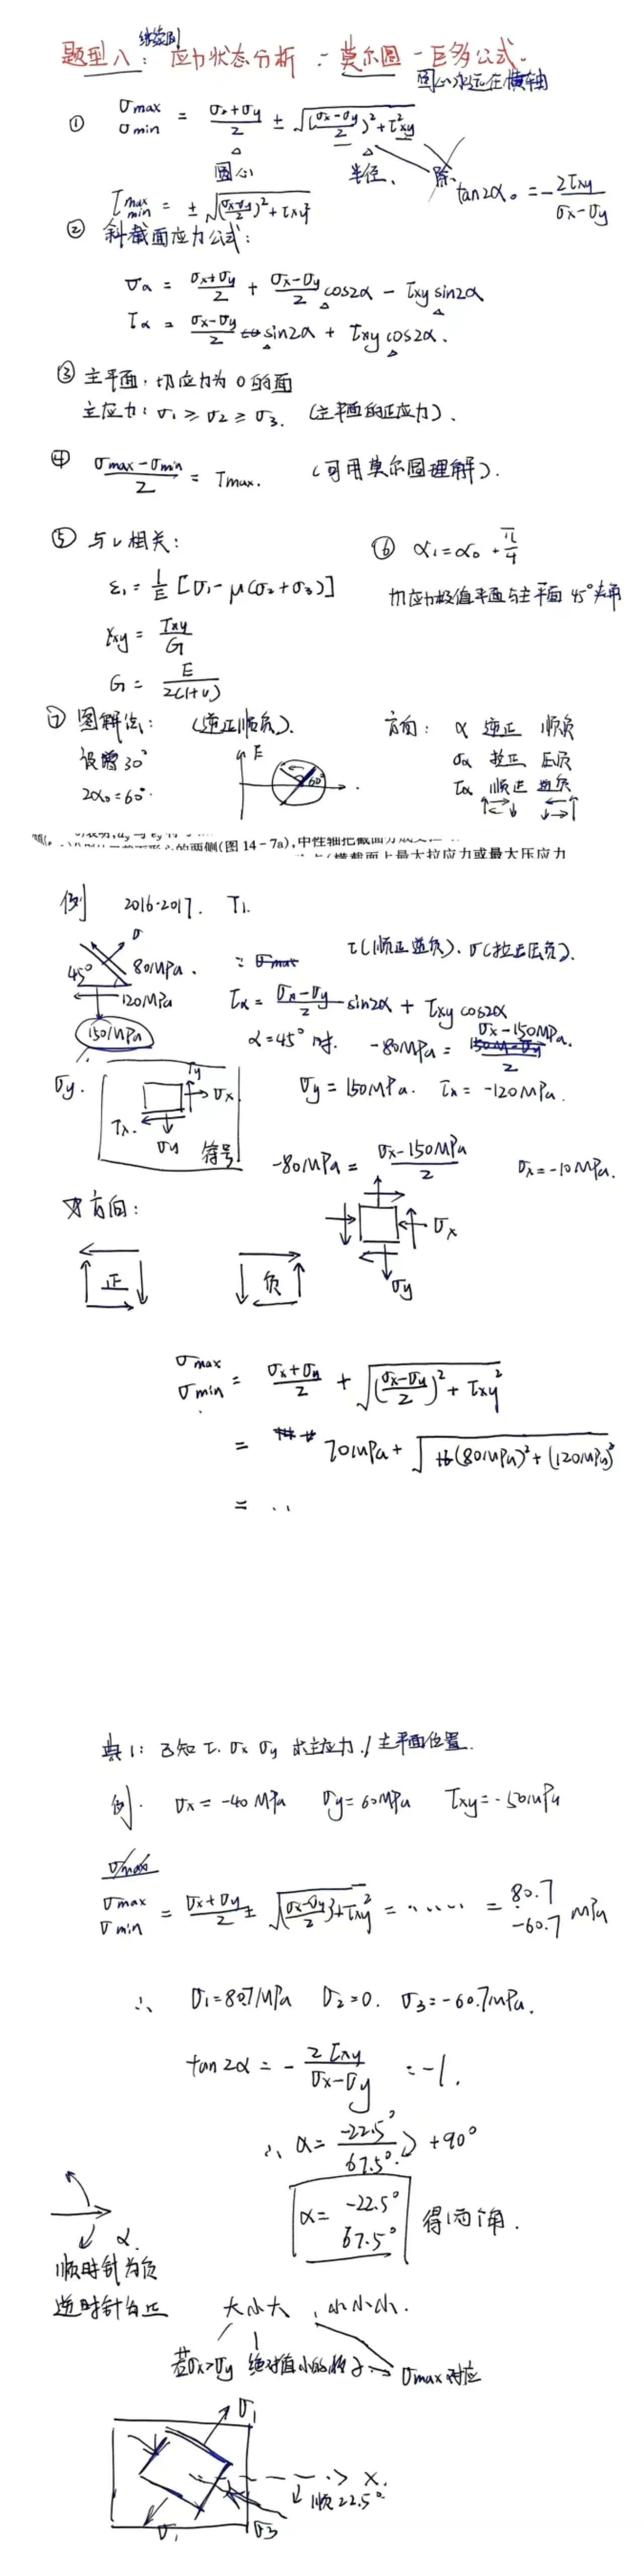 题型八：应力状态分析 - 莫尔圆 - 巨多公式。
圆心永远在横轴
① σmax σmin = (σx+σy)/2 ± √((σx-σy)/2)²+τxy²
圆心 半径、 除
tan2α₀ = -2τxy/(σx-σy)
τmax min = ± √((σx-σy)/2)²+τxy²
② 斜截面应力公式：
σα = (σx+σy)/2 + (σx-σy)/2 cos2α - τxy sin2α
τα = (σx-σy)/2 sin2α + τxy cos2α.
③ 主平面：切应力为0的面
主应力：σ1 ≥ σ2 ≥ σ3. (主平面的正应力).
④ (σmax-σmin)/2 = τmax. (可用莫尔圆理解).
⑤ 与ν相关： ⑥ α1=α0+π/4
ε1 = 1/E [σ1-μ(σ2+σ3)] 切应力极值平面与主平面45°夹角
γxy = τxy/G
G = E/2(1+ν)
⑦ 图解法： (逆正顺负). 方向： α 逆正 顺负
60° σα 拉正 压负
2α₀=60°. τα 顺正 逆负
的两侧(图14-7a),中性轴把截面分成
横截面上最大拉应力或最大压应力
例 2016-2017. T1.
τ(顺正逆负).σ(拉正压负).
45° 80MPa.
σ
120MPa
150MPa
τα = (σx-σy)/2 sin2α + τxy cos2α
α=45°时. -80MPa = (σx-150MPa)/2.
σy. τy σx
τx. σy 符号
σy = 150MPa. τx = -120MPa.
-80MPa = (σx-150MPa)/2 σx=-10MPa.
方向：
正 负
σx
σy
σmax σmin = (σx+σy)/2 + √((σx-σy)/2)²+τxy²
= 70MPa + √(80MPa)²+(120MPa)²
= ..
典1：已知τ. σx σy 求主应力/主平面位置.
例. σx = -40MPa σy = 60MPa τxy = -50MPa
σmax
σmax σmin = (σx+σy)/2 ± √((σx-σy)/2)²+τxy² = ..... = 80.7 -60.7 MPa
∴ σ1=80.7MPa σ2=0. σ3=-60.7MPa.
tan2α = - 2τxy/(σx-σy) = -1.
∴ α = -22.5° 67.5° +90°
α = -22.5° 67.5° 得两个角.
α.
顺时针为负
逆时针为正 大小大，小小小.
若σx>σy 绝对值小的 σmax对应
σ1
x.
顺22.5°
σ1 σ3